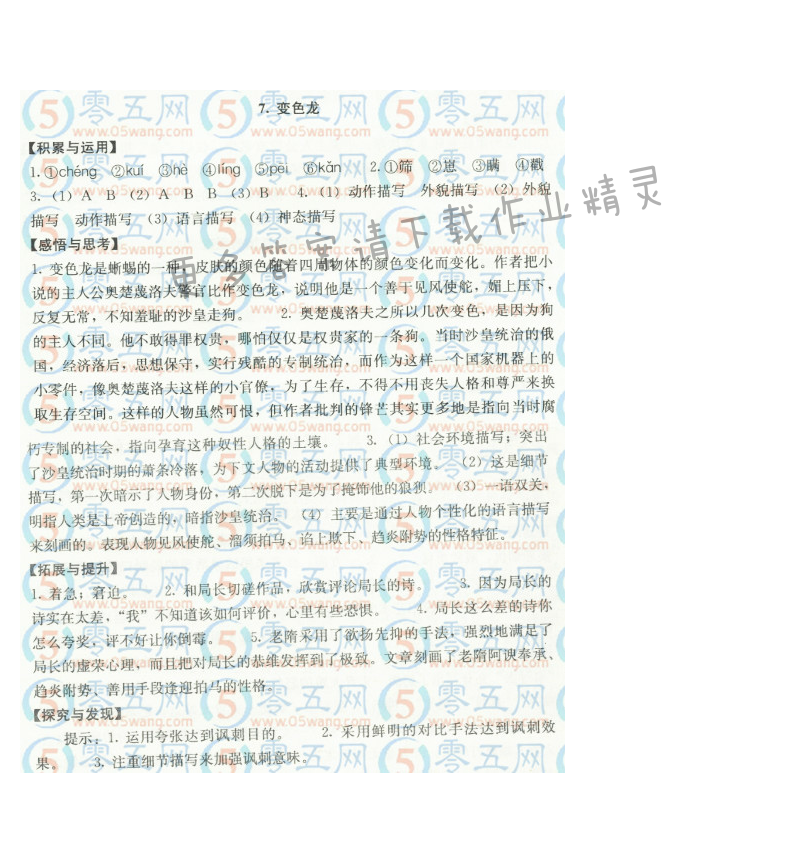 7. 变色龙
【积累与运用】
1. ①chéng ②kuí ③hè ④líng ⑤pēi ⑥kǎn 2. ①筛 ②崽 ③瞒 ④戳
3. (1) A B (2) A B B (3) B 4. (1) 动作描写 外貌描写 (2) 外貌
描写 动作描写 (3) 语言描写 (4) 神态描写
【感悟与思考】
1. 变色龙是蜥蜴的一种，皮肤的颜色随着四周物体的颜色变化而变化。作者把小
说的主人公奥楚蔑洛夫警官比作变色龙，说明他是一个善于见风使舵，媚上压下，
反复无常，不知羞耻的沙皇走狗。 2. 奥楚蔑洛夫之所以几次变色，是因为狗
的主人不同。他不敢得罪权贵，哪怕仅仅是权贵家的一条狗。当时沙皇统治的俄
国，经济落后，思想保守，实行残酷的专制统治，而作为这样一个国家机器上的
小零件，像奥楚蔑洛夫这样的小官僚，为了生存，不得不用丧失人格和尊严来换
取生存空间。这样的人物虽然可恨，但作者批判的锋芒其实更多地是指向当时腐
朽专制的社会，指向孕育这种奴性人格的土壤。 3. (1) 社会环境描写；突出
了沙皇统治时期的萧条冷落，为下文人物的活动提供了典型环境。 (2) 这是细节
描写，第一次暗示了人物身份，第二次脱下是为了掩饰他的狼狈。 (3) 一语双关，
明指人类是上帝创造的，暗指沙皇统治。 (4) 主要是通过人物个性化的语言描写
来刻画的。表现人物见风使舵、溜须拍马、谄上欺下、趋炎附势的性格特征。
【拓展与提升】
1. 着急；窘迫。 2. 和局长切磋作品，欣赏评论局长的诗。 3. 因为局长的
诗实在太差，“我”不知道该如何评价，心里有些恐惧。 4. 局长这么差的诗你
怎么夸奖，评不好让你倒霉。 5. 老隋采用了欲扬先抑的手法，强烈地满足了
局长的虚荣心理，而且把对局长的恭维发挥到了极致。文章刻画了老隋阿谀奉承、
趋炎附势、善用手段逢迎拍马的性格。
【探究与发现】
提示：1. 运用夸张达到讽刺目的。 2. 采用鲜明的对比手法达到讽刺效
果。 3. 注重细节描写来加强讽刺意味。
更多答案请下载作业精灵
零五网
www.05wang.com